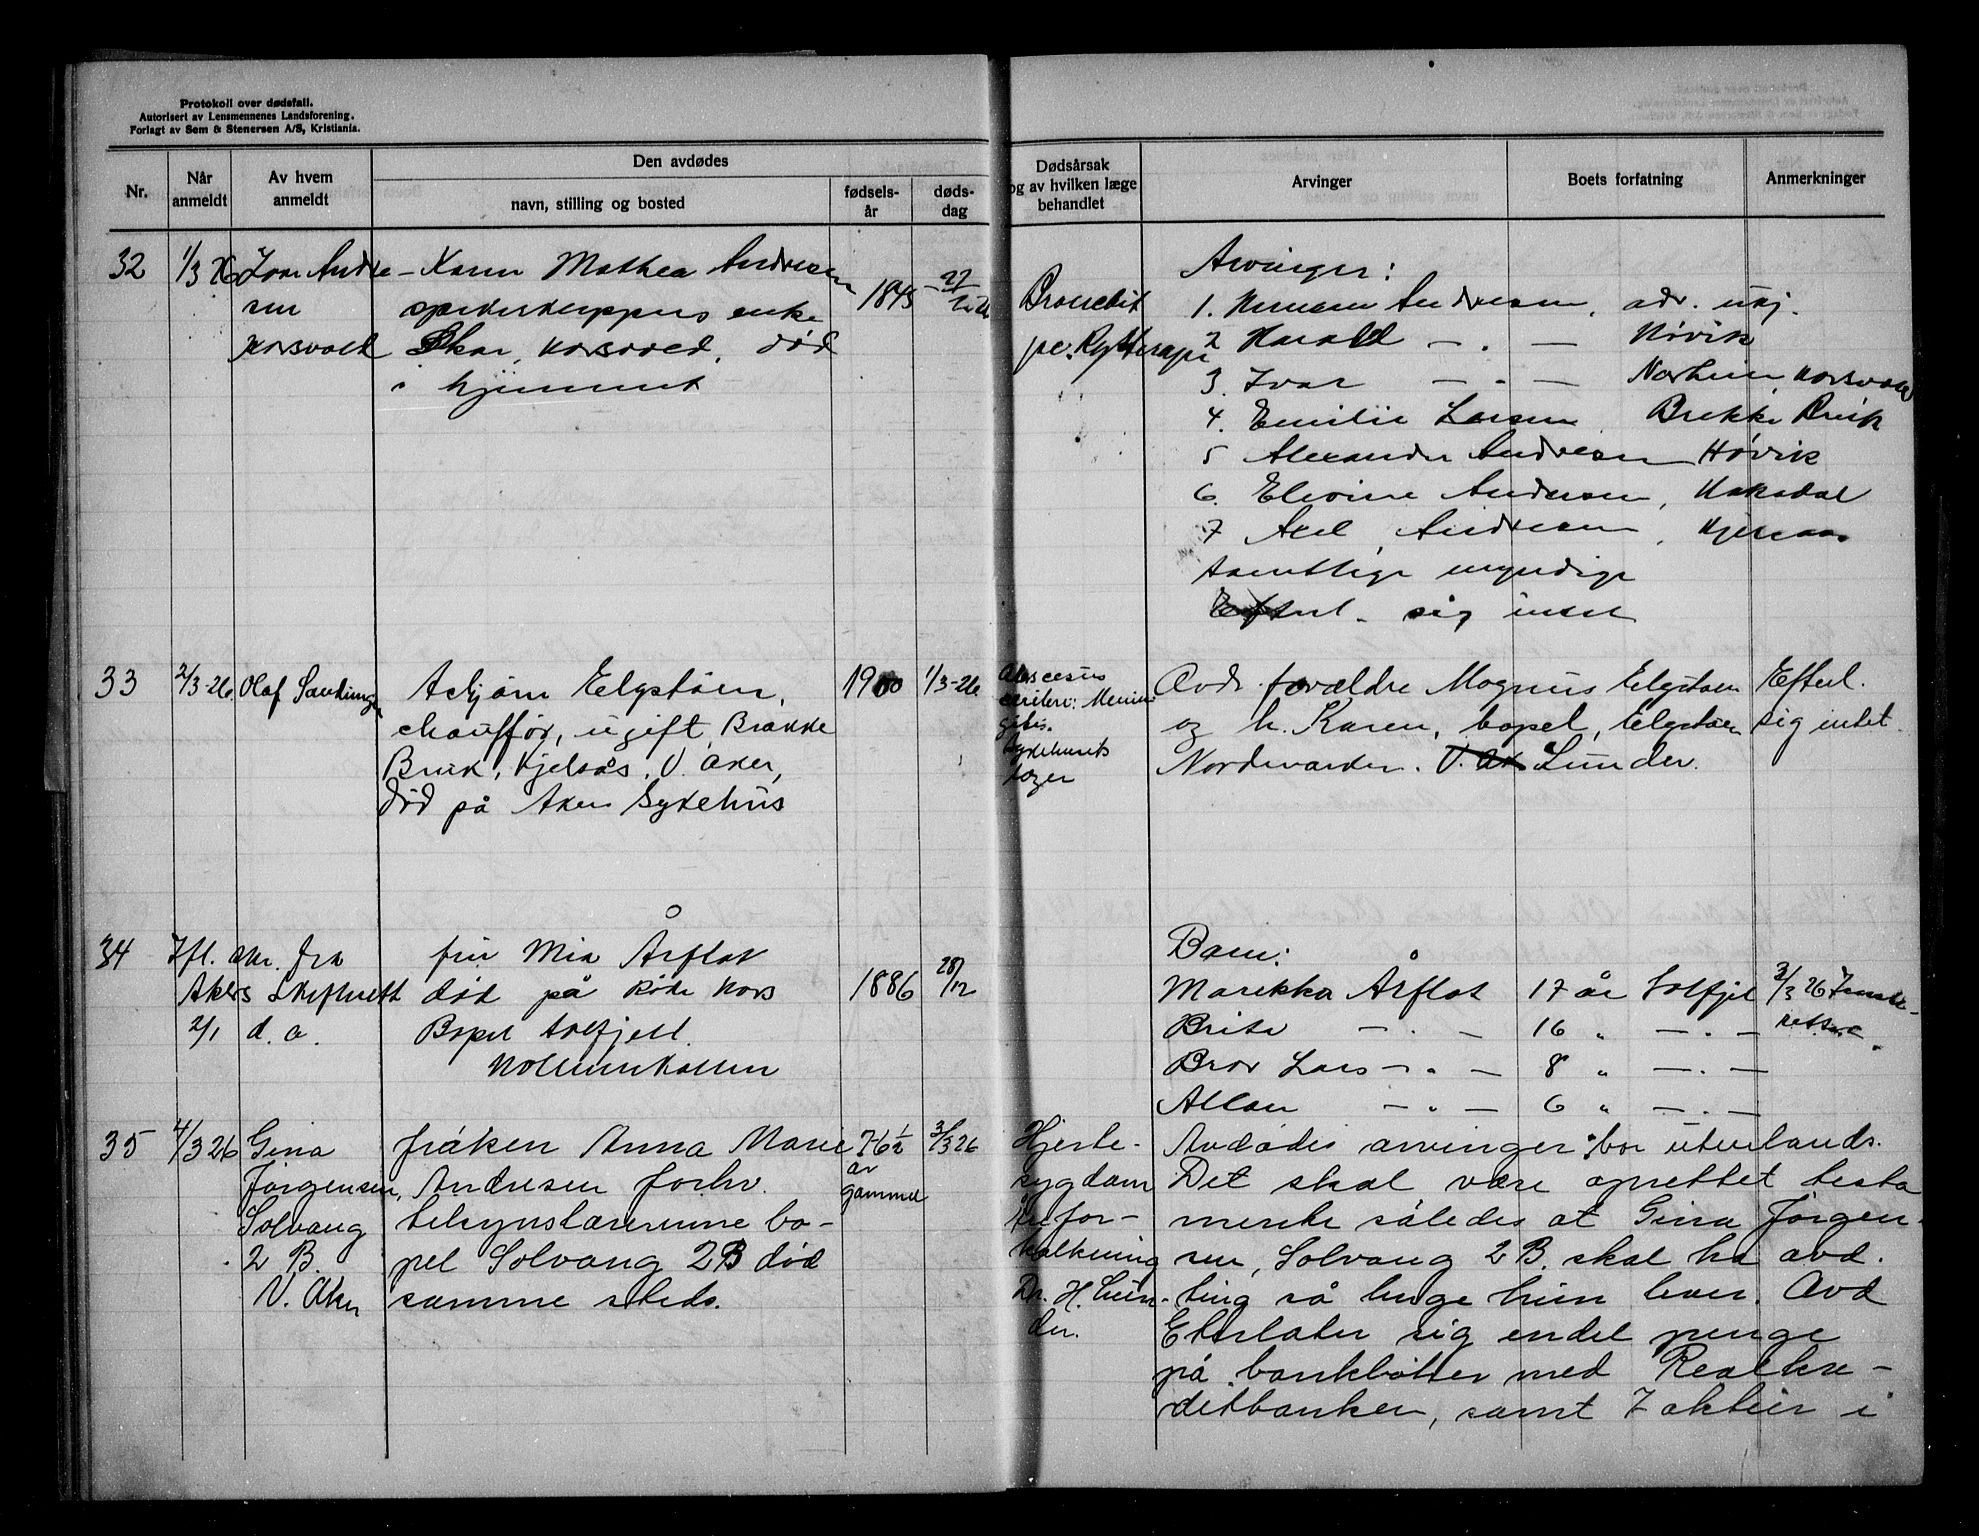 Protokoll over dødsfall.
Autorisert av Lensmennenes Landsforening.
Forlagt av Sem & Stenersen A/S, Kristiania.
Nr.
Når anmeldt
Av hvem anmeldt
Den avdødes
navn, stilling og bosted
fødsels-år
døds-dag
Dødsårsak
og av hvilken læge
behandlet
Arvinger
Boets forfatning
Anmerkninger
32
1/3 26
Ivar Andre-
sen
Korsvoll
Karen Mathea Andresen
enke
Skar, Korsvoll, død
i hjemmet
1845
27/2 26
Arvinger:
1. Herman Andresen, adr. ukj.
2 Harald — " — Høvik
3. Ivar — " — Korsvoll
4. Emilie Larsen, Brekke Bruk
5 Alexander Andresen Høvik
6. Elvine Andersen, Hakadal
7 Axel Andresen, Kjelsaas
samtlige myndige
Efterl. sig intet
33
2/3-26.
Olaf
Asbjørn Elgstøen,
chauffør, ugift, Brække
Bruk, Kjelsås, V. Aker,
død på Aker sykehus
1900
1/3-26
Abscesus
cerebri: Menin
gitis.
Sykehusets
læger
Avds forældre Magnus Elgstøen
og h. Karen, bopel, Elgstøen
Lunder.
Efterl.
sig intet.
34
Ifl. skr. fra
Akers Skifterett
2/1 d. a.
fru Mia Årflot
død på Røde Kors
Bopel Solfjell.
Holmenkollen
1886
28/12
Barn:
Marikka Årflot 17 år Solfjel
Brite — " — 16 " — " —
Bror Lars — " — 8 " — " —
Allan — " — 6 " — " —
3/3 26
35
4/3 26
Gina
Jørgensen,
Solvang
2 B.
V. Aker
frøken Anna Marie
Andresen forhv.
telegraf
bo-
pel Solvang 2B død
samme steds.
76 1/2
år
gammel
3/3 26
Hjerte-
sygdom
Årefor-
kalkning
Dr. H. Lun-
der.
Avdødes arvinger bor utenlands.
Det skal være oprettet testa
mente således at Gina Jørgen-
sen, Solvang 2 B. skal ha avd.
ting så lenge hun lever. Avd
Etterlater sig endel penge
på bankbøker med Realkre-
ditbanken, samt 7 aktier i